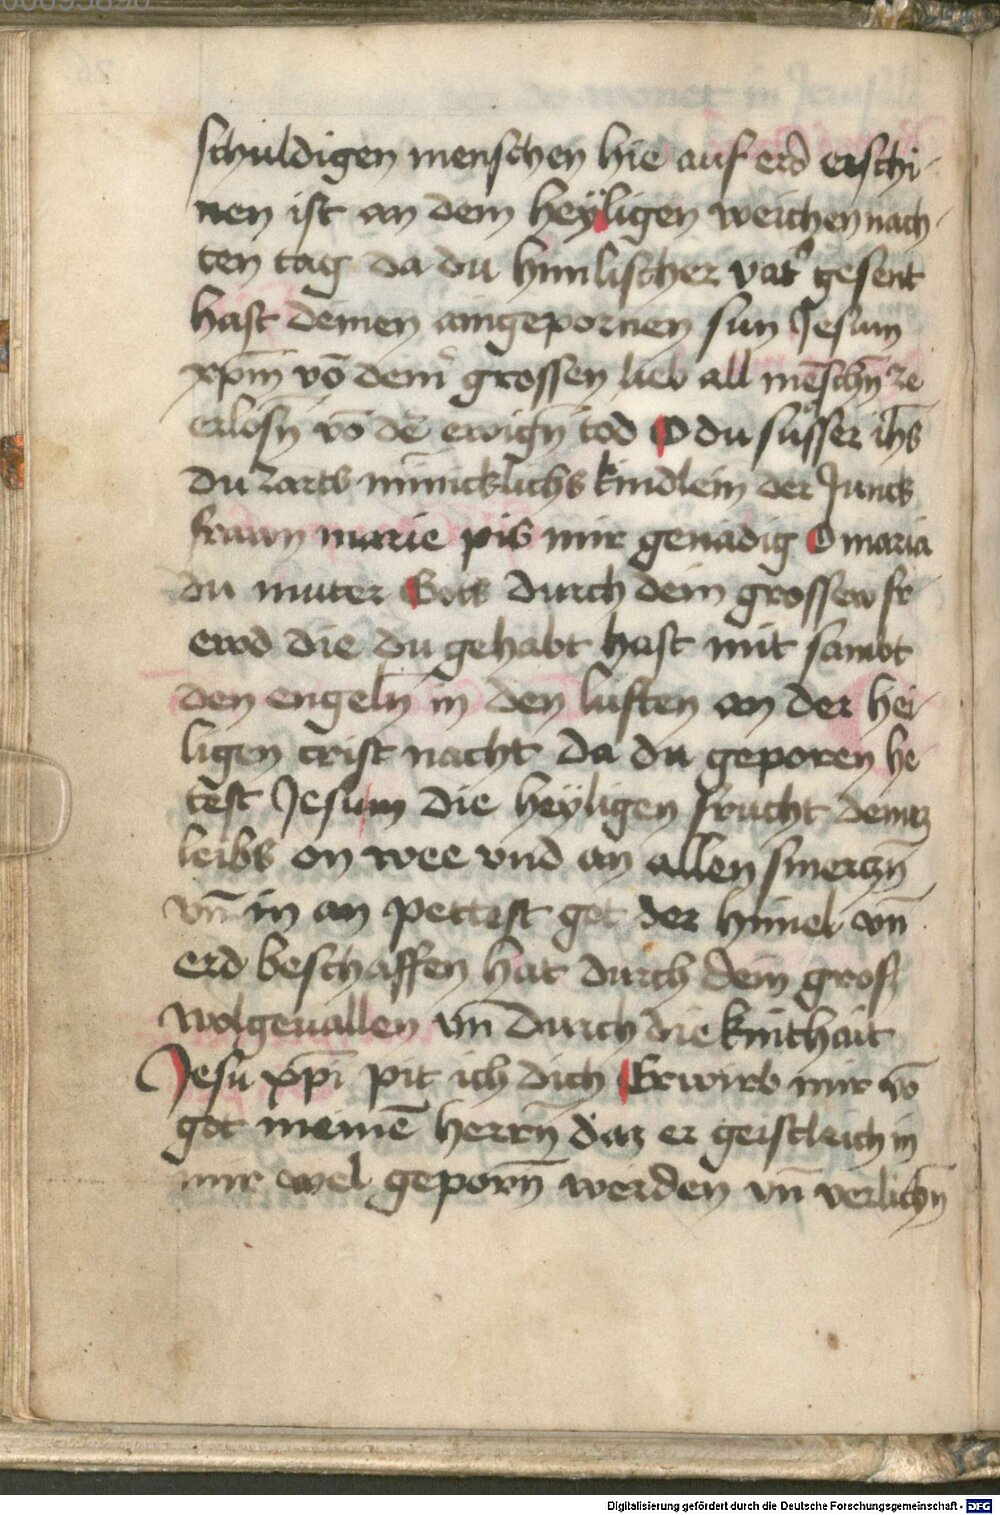 schuldigen menschen hie auf erd erschi-
nen ist an dem heÿligen weichennach-
ten tag da du himlischer vat' gesent
hast deinen aingepornen sun Jesum
xp̄m vō dein' grossen lieb all mēschn̄ ze
erlosn̄ vō dē ewign̄ tod O du sůsser ih̄s
du zarts minicklichs kindlein der Junck
frawn marie pis mir genadig O maria
du muter Gots durch dein grossew fr-
ewd die du gehabt hast mit sambt
den engeln in den luften an der hei-
ligen crist nacht da du geporen he-
test Jesum die heÿligen frucht deincz
leibs on wee vnd an allen smerczn̄
vn̄ in an pettest got der himel vn̄
erd beschaffen hat durch dein gros
wolgeuallen vn̄ durch die kinthait
Jesu xp̄i pit ich dich Erwirb mir vō
got meinē herrn̄ daz er geistleich in
mir wel geporn̄ werden vn̄ verlichn̄
Digitalisierung gefördert durch die Deutsche Forschungsgemeinschaft - DFG